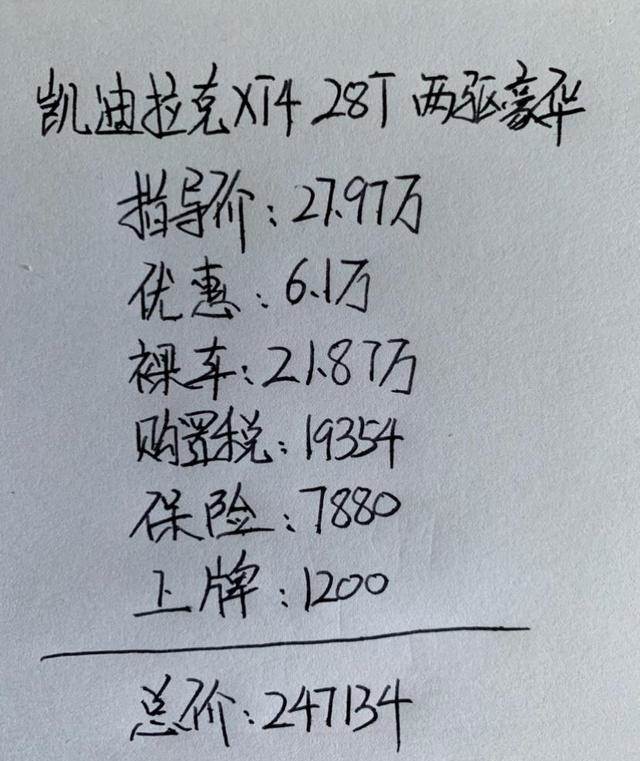 凯迪拉克XT4 28T 两驱豪华
指导价:27.97万
优惠:6.1万
裸车:21.87万
购置税:19354
保险:7880
上牌:1200
总价:247134